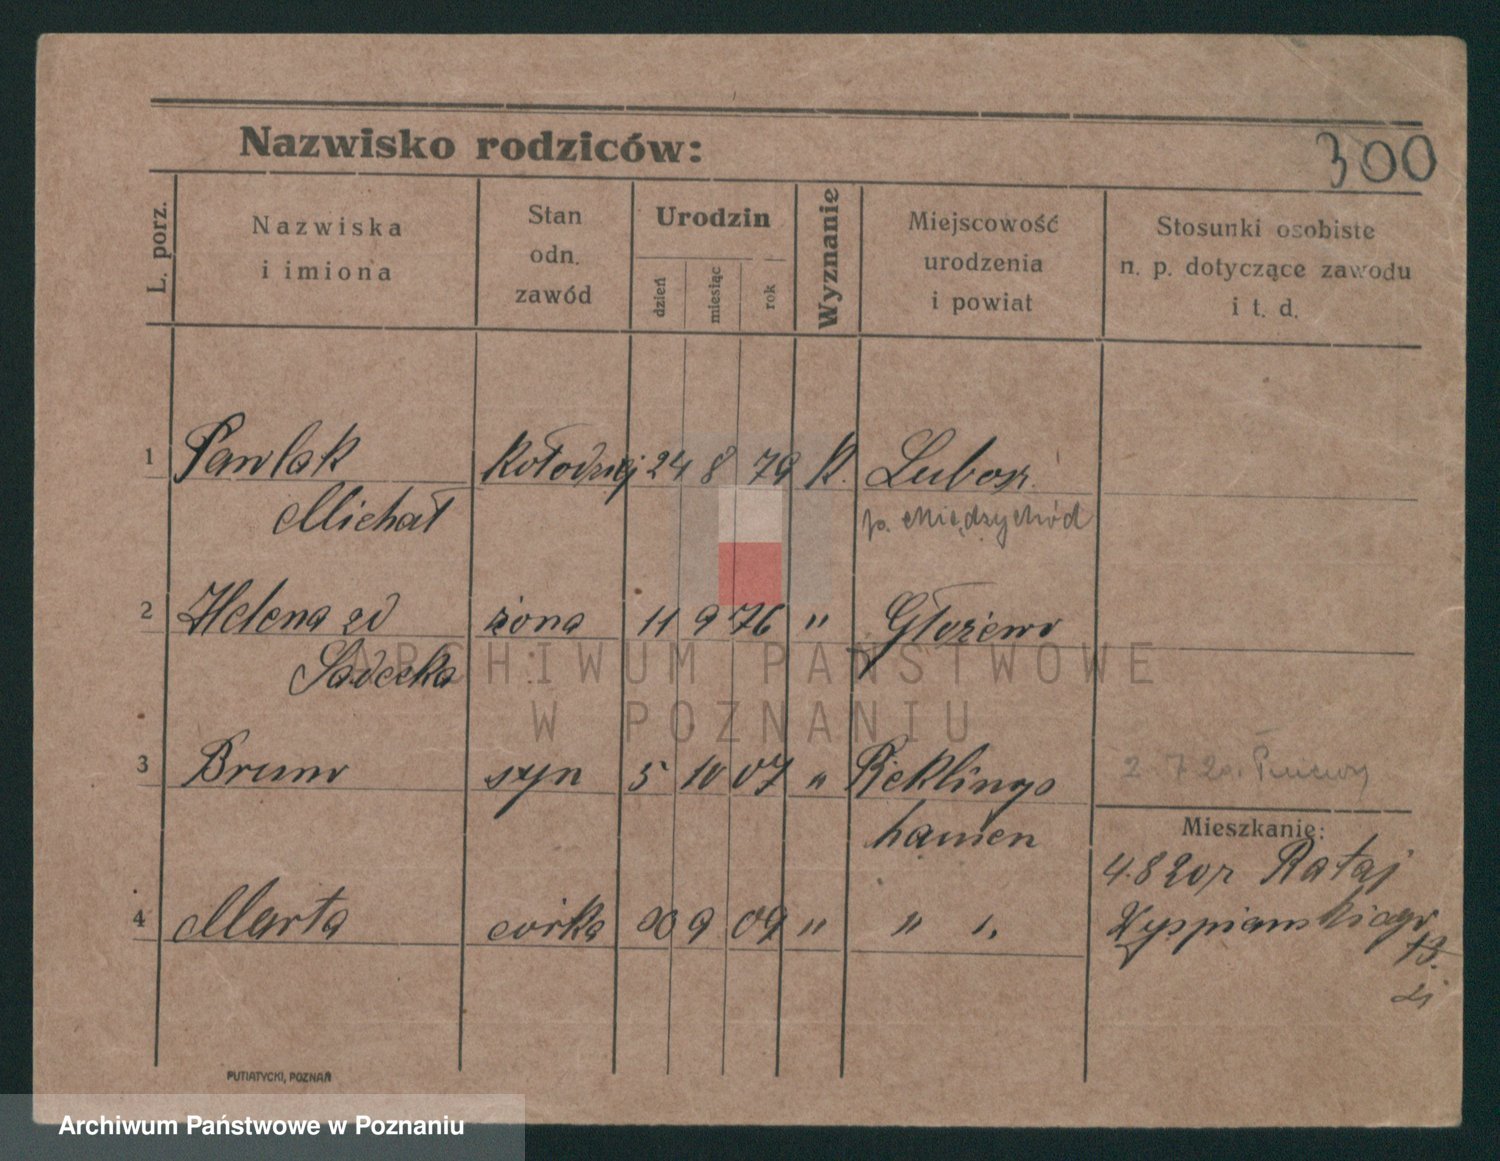 Nazwisko rodziców:
300
L. porz.
Nazwiska
i imiona
Stan
odn.
zawód
Urodzin
dzień
miesiąc
rok
Wyznanie
Miejscowość
urodzenia
i powiat
Stosunki osobiste
n. p. dotyczące zawodu
i t. d.
1 Pawlak kołodziej 24 8 79 K. Lubosz
Michał p. Międzychód
2 Helena zd żona 11 9 76 " Głożewo
Sadecka
3 Bruno syn 5 10 07 " Reklings
hausen
2 7 20. Pniewy
Mieszkanie:
4.8 20 r Rataj
4 Marta córka 20 9 09 " " "
Wyspiańskiego
13.
PUTIATYCKI, POZNAŃ
ARCHIWUM PAŃSTWOWE
W POZNANIU
Archiwum Państwowe w Poznaniu